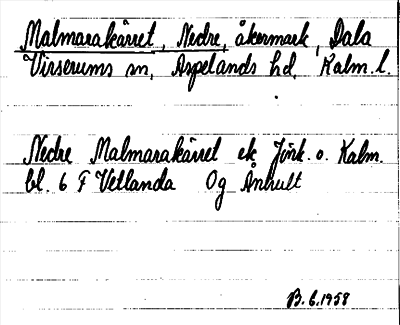 Malmarakärret, Nedre, åkermark, Dala
Virserums sn, Aspelands hd, Kalm. l.
Nedre Malmarakärret ek Jönk. o. Kalm.
bl. 6 F Vetlanda Og Änhult
B. 6. 1958